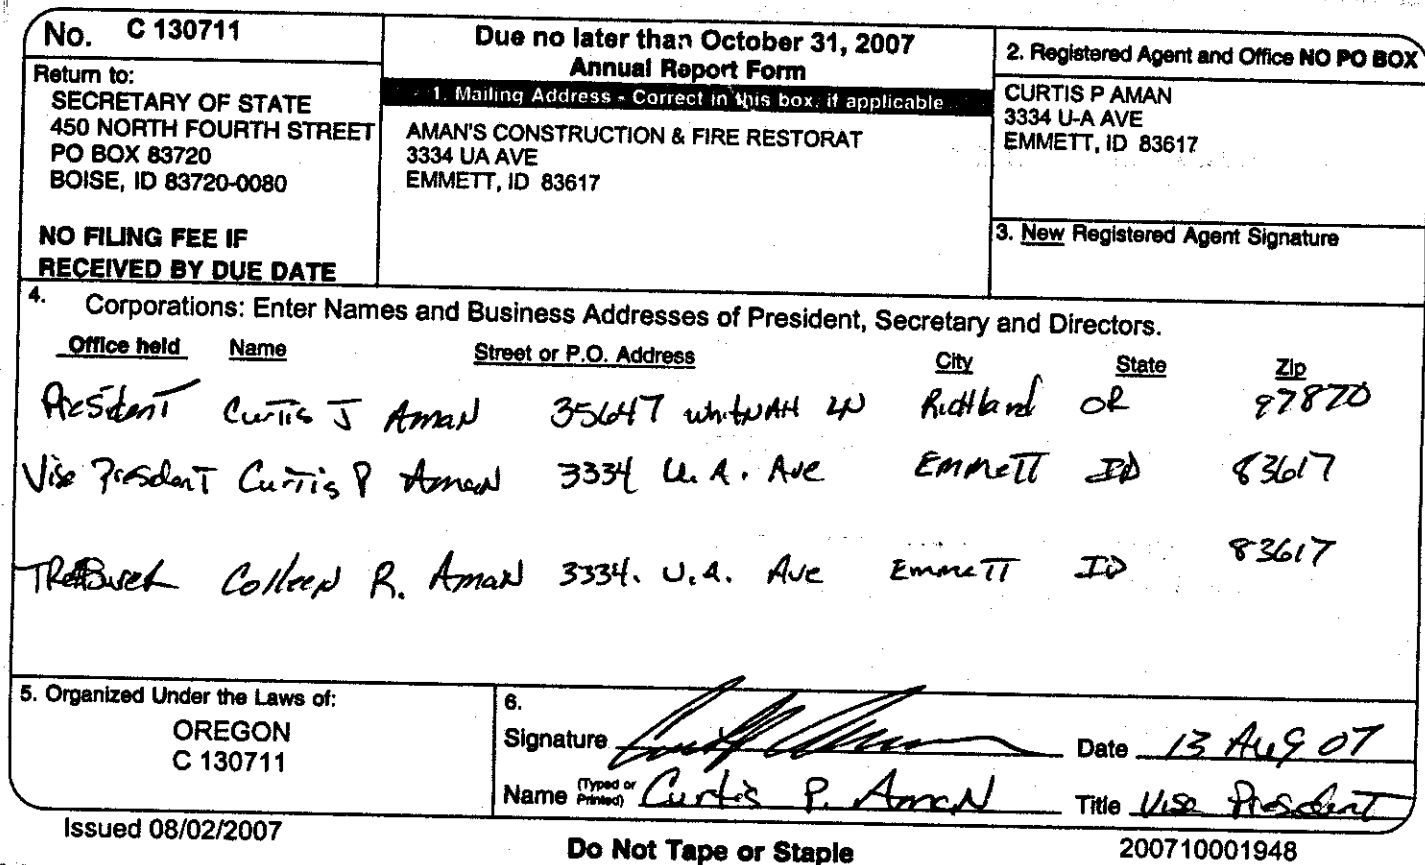 No. C 130711
Return to:
SECRETARY OF STATE
450 NORTH FOURTH STREET
PO BOX 83720
BOISE, ID 83720-0080
NO FILING FEE IF
RECEIVED BY DUE DATE
Due no later than October 31, 2007
Annual Report Form
1. Mailing Address - Correct in this box, if applicable
AMAN'S CONSTRUCTION & FIRE RESTORAT
3334 UA AVE
EMMETT, ID 83617
2. Registered Agent and Office NO PO BOX
CURTIS P AMAN
3334 U-A AVE
EMMETT, ID 83617
3. New Registered Agent Signature
4. Corporations: Enter Names and Business Addresses of President, Secretary and Directors.
Office held Name Street or P.O. Address City State Zip
President Curtis J Aman 35647 LN Richland OR 97870
Vise President Curtis P Aman 3334 U.A. Ave Emmett ID 83617
Colleen R. Aman 3334. U.A. Ave Emmett ID 83617
5. Organized Under the Laws of:
OREGON
C 130711
6.
Signature Date 13 Aug 07
Name (Typed or Printed) Curtis P. Aman Title Vise President
Issued 08/02/2007
Do Not Tape or Staple
200710001948